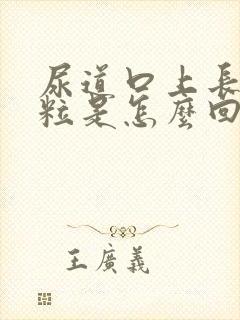 尿道口上長
粒是怎麼回
王廣義